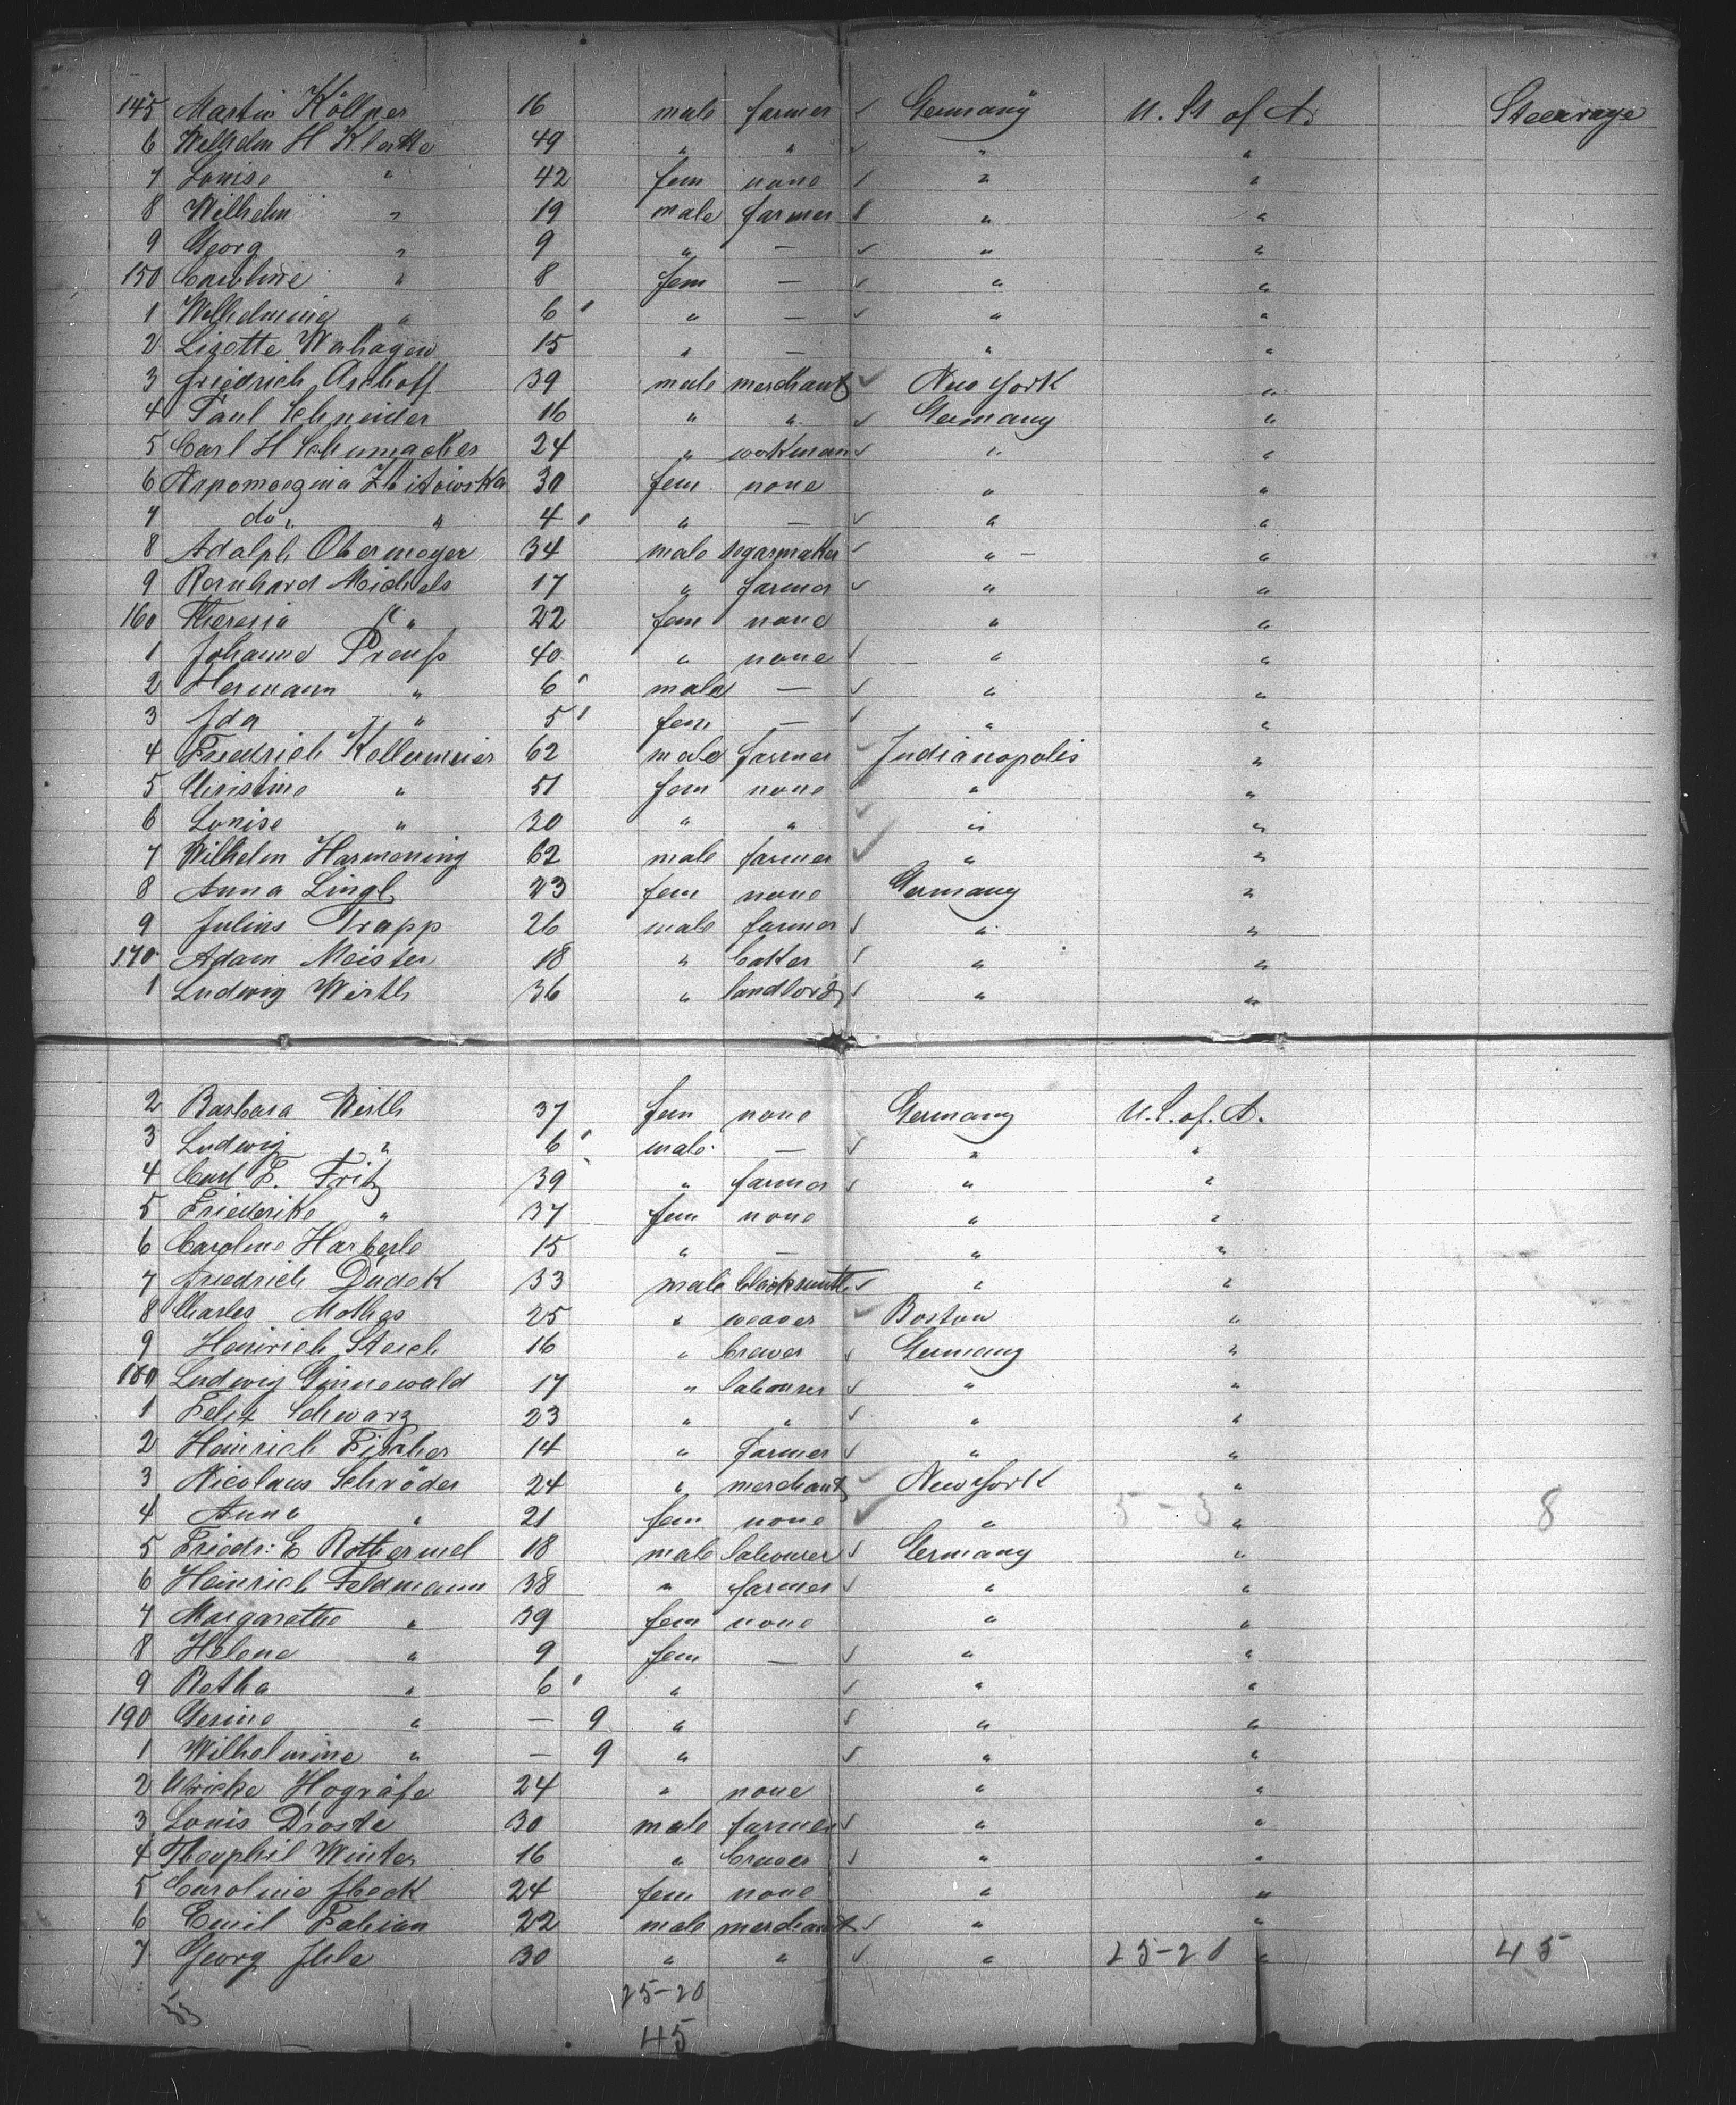 145 Martin Köllner 16 male farmer ✓ Germany U. St of A. Steerage
6 Wilhelm H Klatte 49 " " ✓ " "
7 Louise " 42 fem none ✓ " "
8 Wilhelm " 19 male farmer ✓ " "
9 Georg " 9 " — ✓ " "
150 Caroline " 8 fem — ✓ " "
1 Wilhelmine " 6 " — ✓ " "
2 Lisette 15 " — " "
3 Friedrich Aschoff 39 male merchant ✓ New York "
4 Paul Schneider 16 " " ✓ Germany "
5 Carl H Schumacher 24 " workman ✓ " "
6 30 fem none " "
7 do " 4 " — ✓ " "
8 Adolph Obermeyer 34 male segarmaker ✓ " — "
9 Bernhard Michels 17 " farmer ✓ " "
160 Theresia " 22 fem none " "
1 Johanne Preuß 40 " none ✓ " "
2 Hermann " 6 male — ✓ " "
3 Ida " 5 fem — ✓ " "
4 Friedrich Kellermeier 62 male farmer ✓ Indianapolis "
5 Christine " 51 fem none ✓ " "
6 Louise " 20 " " ✓ " "
7 Wilhelm Harmening 62 male farmer ✓ " "
8 Anna Lingl 23 fem none Germany "
9 Julius Trapp 26 male farmer ✓ " "
170 Adam Meister 18 " baker ✓ " "
1 Ludwig Wirth 36 " landlord ✓ " "
2 Barbara Wirth 37 fem none Germany U. S. of. A.
3 Ludwig " 6 male — ✓ " "
4 Carl F. Fritz 39 " farmer ✓ " "
5 Friederike " 37 fem none " "
6 Caroline Harberle 15 " — " "
7 Friedrich Dudek 33 male blacksmith ✓ " "
8 Charles Mothes 25 " weaver ✓ Boston "
9 Heinrich Storch 16 " brewer ✓ Germany "
180 Ludwig Ginnewald 17 " labourer ✓ " "
1 Felix Schwarz 23 " " ✓ " "
2 Heinrich Fischer 14 " farmer ✓ " "
3 Nicolaus Schröder 24 " merchant ✓ New York "
4 Anna " 21 fem none ✓ " 5-3 " 8
5 Friedr: E Rothermel 18 male labourer ✓ Germany "
6 Heinrich Feldmann 38 " farmer ✓ " "
7 Margarethe " 39 fem none " "
8 Helene " 9 fem — ✓ " "
9 Betha " 6 " ✓ " "
190 Gesine " — 9 " ✓ " "
1 Wilhelmine " — 9 " ✓ " "
2 Ulricke Hogräfe 24 " none " "
3 Louis Droste 30 male farmer ✓ " "
4 Theophil Winter 16 " brewer ✓ " "
5 Caroline 24 fem none " "
6 Emil Fabian 22 male merchant ✓ " "
7 Georg Ihle 30 " " ✓ " 25-20 " 45
53 25-20
45